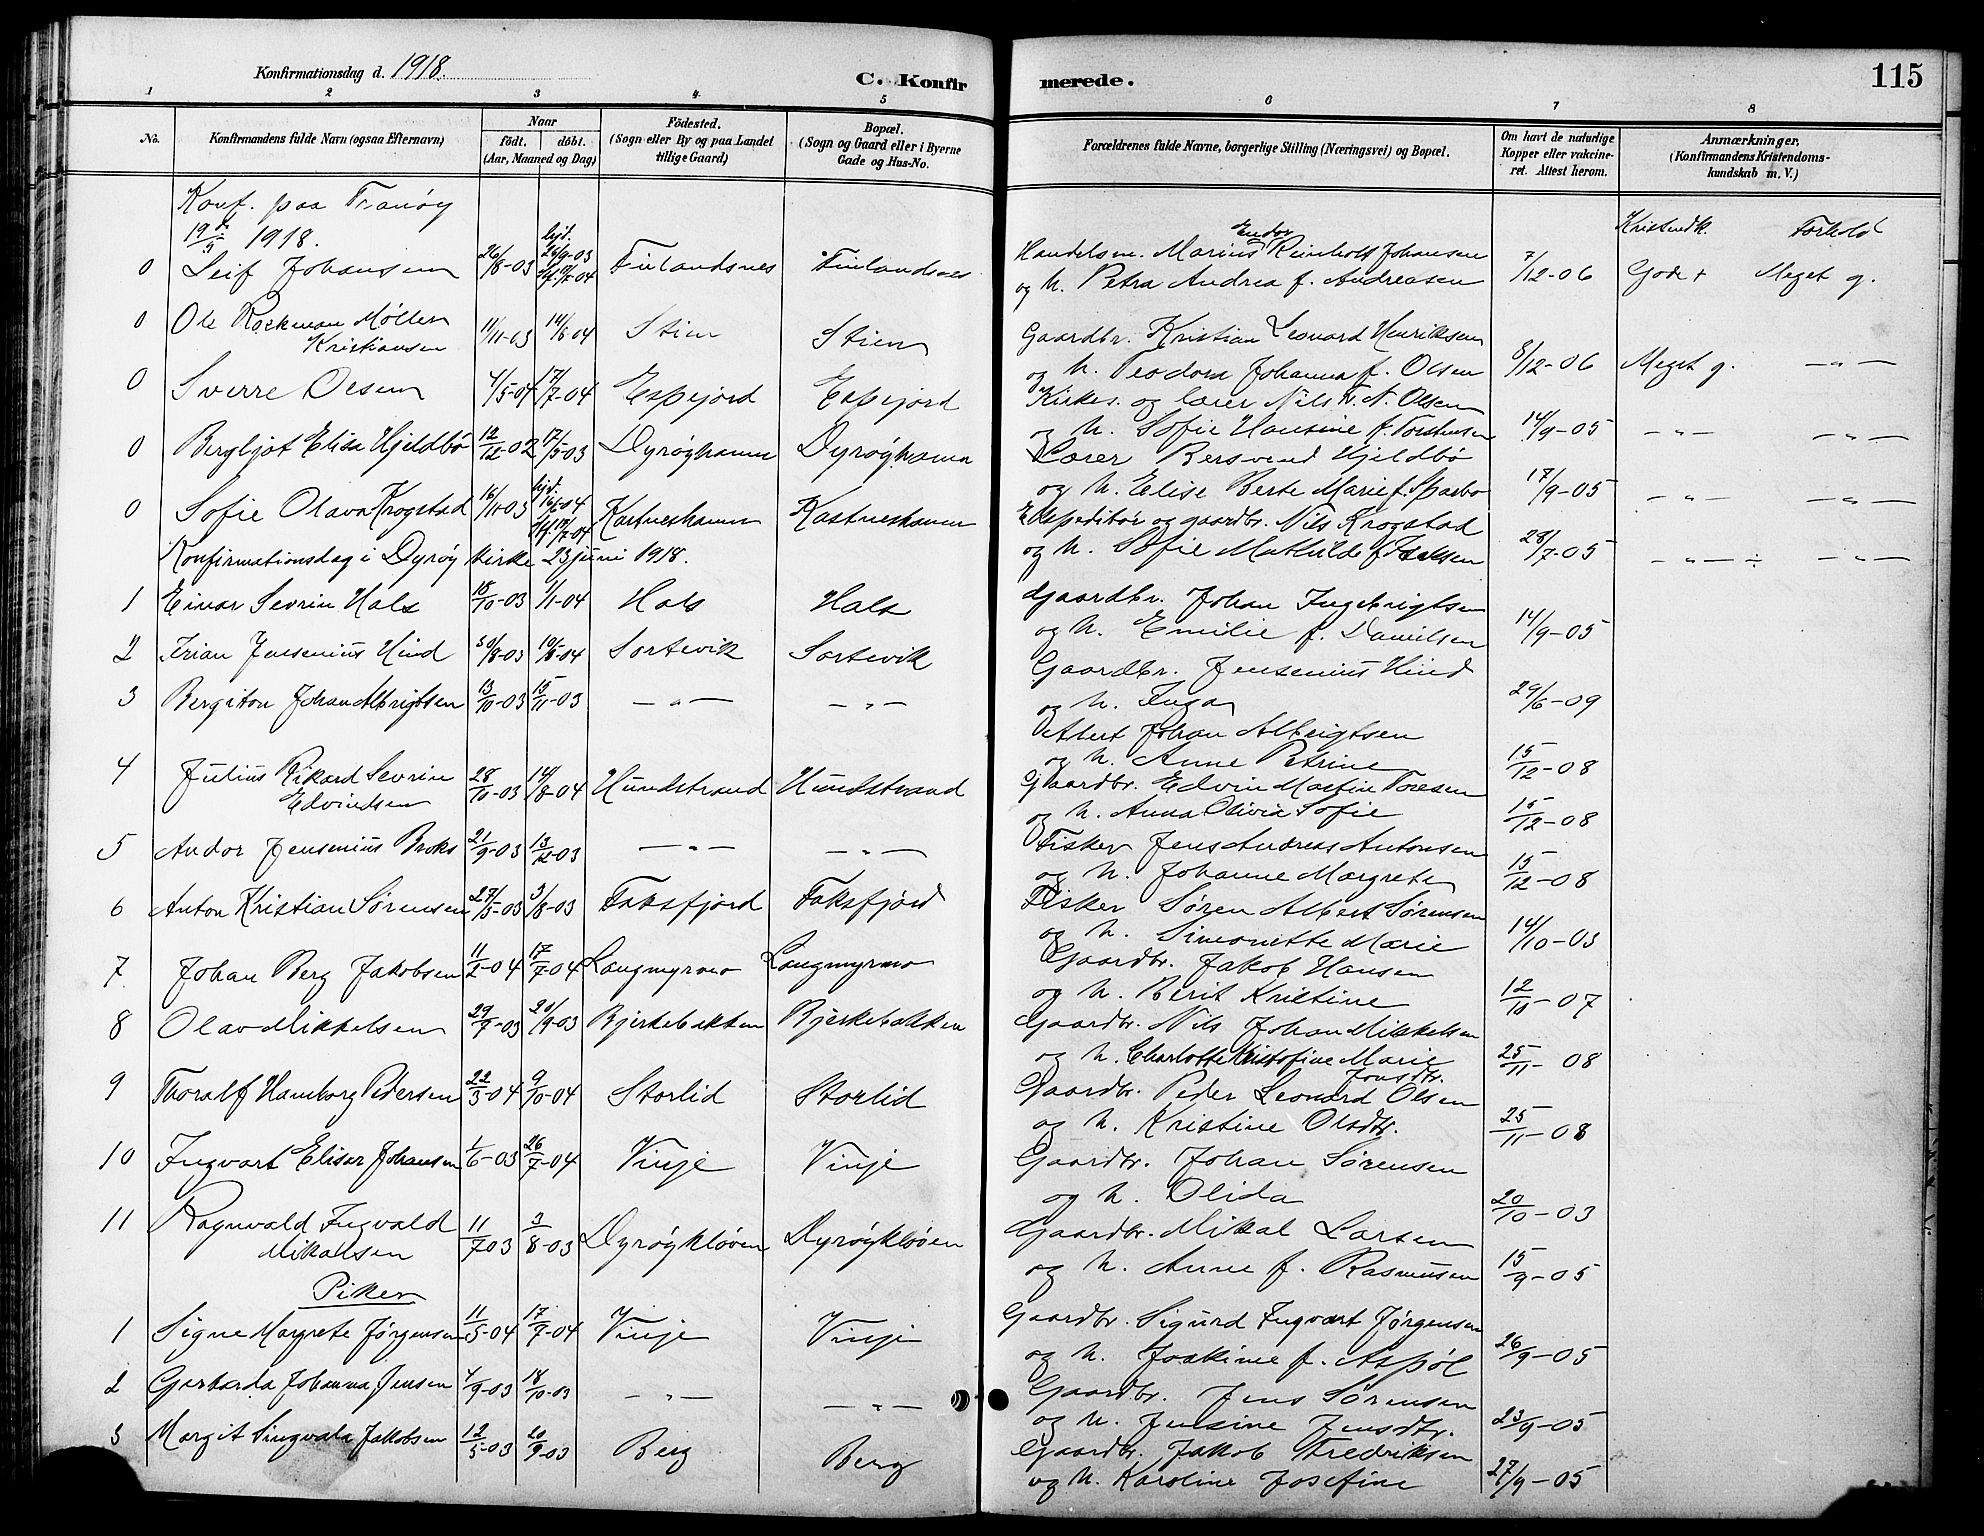 Konfirmationsdag d. 1918.
C. Konfir
merede.
115
1 2 3 4 5 6 7 8
No. Konfirmandens fulde Navn (ogsaa Efternavn) Naar født. døbt. (Aar, Maaned og Dag) Fødested. (Sogn eller By og paa Landet tillige Gaard) Bopæl. (Sogn og Gaard eller i Byerne Gade og Hus-No. Forældrenes fulde Navne, borgerlige Stilling (Næringsvei) og Bopæl. Om havt de naturlige Kopper eller vakcineret. Attest herom. Anmærkninger, (Konfirmandens Kristendomskundskab m. V.)
Konf. paa Tranøy
19/5 1918. Kristendk. Forhold
0 Leif Johansen 26/8-03 hjd. 26/9-03 Finlandsnes Finlandsnes Handelsm. Marius Endor Reinholt Johansen
og h. Petra Andrea f. Andreasen 7/12-06 Godt + Meget g.
0 Ole Rockman Møller 11/11-03 14/8 04 Stien Stien Gaardbr. Kristian Leonard Henriksen
Kristiansen og h. Teodora Johanna f. Olsen 8/12-06 Meget g. — " —
0 Sverre Olsen 4/5-04 17/7-04 Espejord Espejord Kirkes. og lærer Nils N. Olsen
og h. Sofie Hansine f. Torstensen 14/9-05 — " — — " —
0 Bergljot Elisa Hjeldbø 12/12-02 17/5-03 Dyrøyhamn Dyrøyhamn Lærer Bersvend Hjeldbø
og h. Elise Berte Marie f. Sparbo 17/9-05 — " — — " —
0 Sofie Olava Krogstad 16/11-03 hjd. Kastneshamn Kastneshamn Ekspeditør og gaardbr. Nils Krogstad
og h. Sofie Mathilde f. 28/7-05 — " — — " —
Konfirmationsdag i Dyrøy kirke 23 juni 1918.
1 Einar Sevrin Hals 18/10-03 1/1-04 Hals Hals Gaardbr. Johan Ingebrigtsen
og h. Emilie f. Danielsen 14/9-05
2 Jensenius Hind 30/8-03 10/8-04 Sortevik Sortevik Gaardbr. Jensenius Hind
og h. Inga 29/6-09
3 Bergiton Johan Albrigtsen 13/10-03 15/11-03 — " — — " — Albert Johan Albrigtsen
og h. Anne Petrine 15/12-08
4 Julius Rikard Sevrin 28/10-03 14/8-04 Hundstrand Hundstrand Gaardbr. Edvin Martin Toresen
Edvindsen og h. Anna Olivia Sofie 15/12-08
5 Andor Jensenius Broks 21/9-03 13/12-03 — " — — " — Fisker Jens Andreas Antonsen
og h. Johanne Margrete 15/12-08
6 Anton Kristian Sørensen 27/5-03 3/8-03 Faksfjord Faksfjord Fisker Søren Albert Sørensen
og h. Simonette Marie 14/10-03
7 Johan Berg Jakobsen 11/2-04 17/7-04 Langmyrmo Langmyrmo Gaardbr. Jakob Hansen
og h. Berit Kristine 12/10-07
8 Olav Mikkelsen 29/7-03 20/9-03 Bjerkebakken Bjerkebakken Gaardbr. Nils Johan Mikkelsen
og h. Charlotte Kristofine Marie Jonsdtr. 25/11-08
9 Thoralf Hamborg Pedersen 22/3-04 9/10-04 Storlid Storlid Gaardbr. Peder Leonard Olsen
og h. Kristine Olsdtr. 25/11-08
10 Ingvart Elisar Johansen 1/6-03 26/7-04 Vinje Vinje Gaardbr. Johan Sørensen
og h. Olida 20/10-03
11 Ragnvald Ingvald 11/7 03 3/8-03 Dyrøykløven Dyrøykløven Gaardbr. Mikal Larsen
Mikalsen og h. Anne f. Rasmussen 15/9-05
Piker
1 Signe Margrete Jørgensen 11/5-04 17/7-04 Vinje Vinje Gaardbr. Sigurd Ingvart Jørgensen
og h. Joakime f. Aspøl 26/9-05
2 Gerharda Johanna Jensen 4/9-03 18/10-03 — " — — " — Gaardbr. Jens Sørensen
og h. Jensine Jensdtr. 23/9-05
3 Margit Singvala Jakobsen 12/5-03 20/9-03 Berg Berg Gaardbr. Jakob Fredriksen
og h. Karoline Josefine 27/9-05